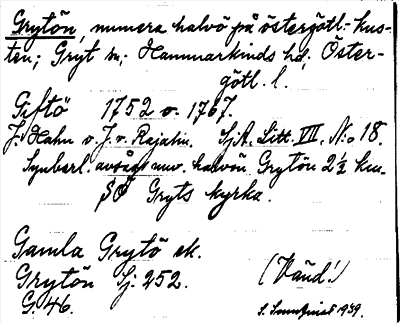 Grytön, numera halvö på östergötl:-kus-
ten; Gryt sn; Hammarkinds hd; Öster-
götl. l.
Giftö 1752 o. 1767.
J. Hahn o. J. v. Rajalin. SjA. Litt. VII, No 18.
Synberl. avsågs nuv. halvön Grytön 2½ km.
SO Gryts kyrka.
Gamla Grytö ek.
Grytön Sj: 252. (Vänd!)
G. 46. S. 1939.